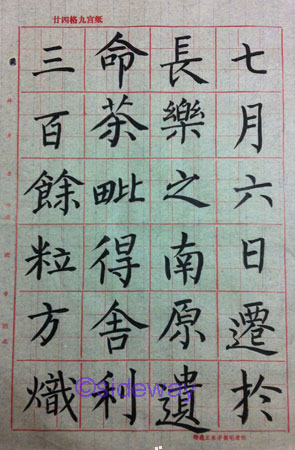 廿四格九宮紙
七月六日遷於
長樂之南原遺
命荼毗得舍利
三百餘粒方熾
©sideway